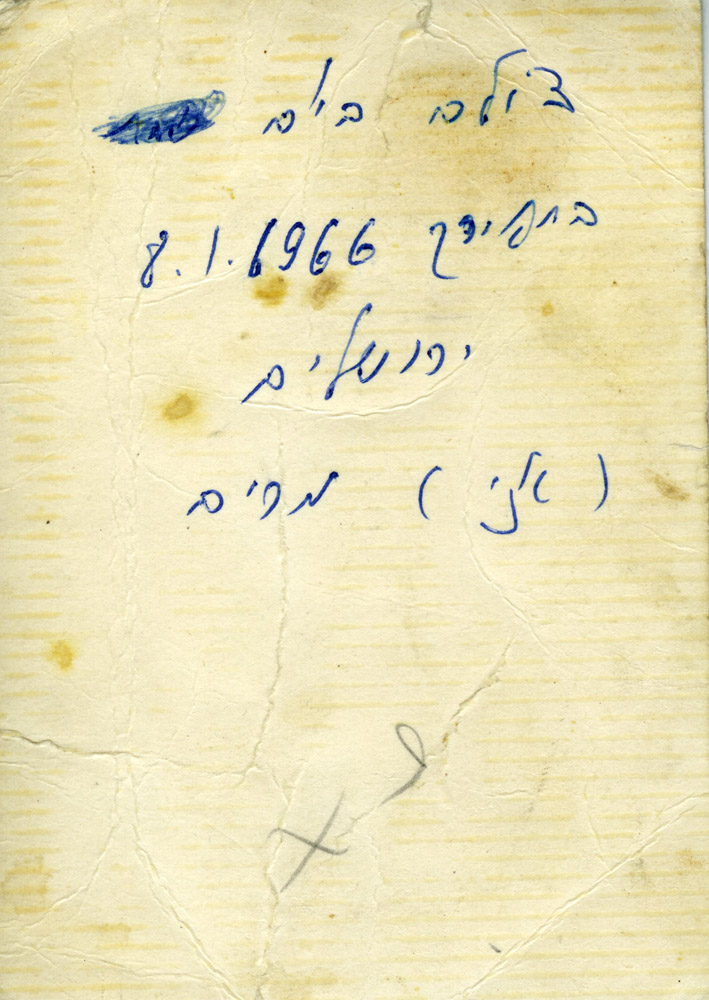 צולם ביום
בתאריך 8.1.1966
ירושלים
(אני) מרים